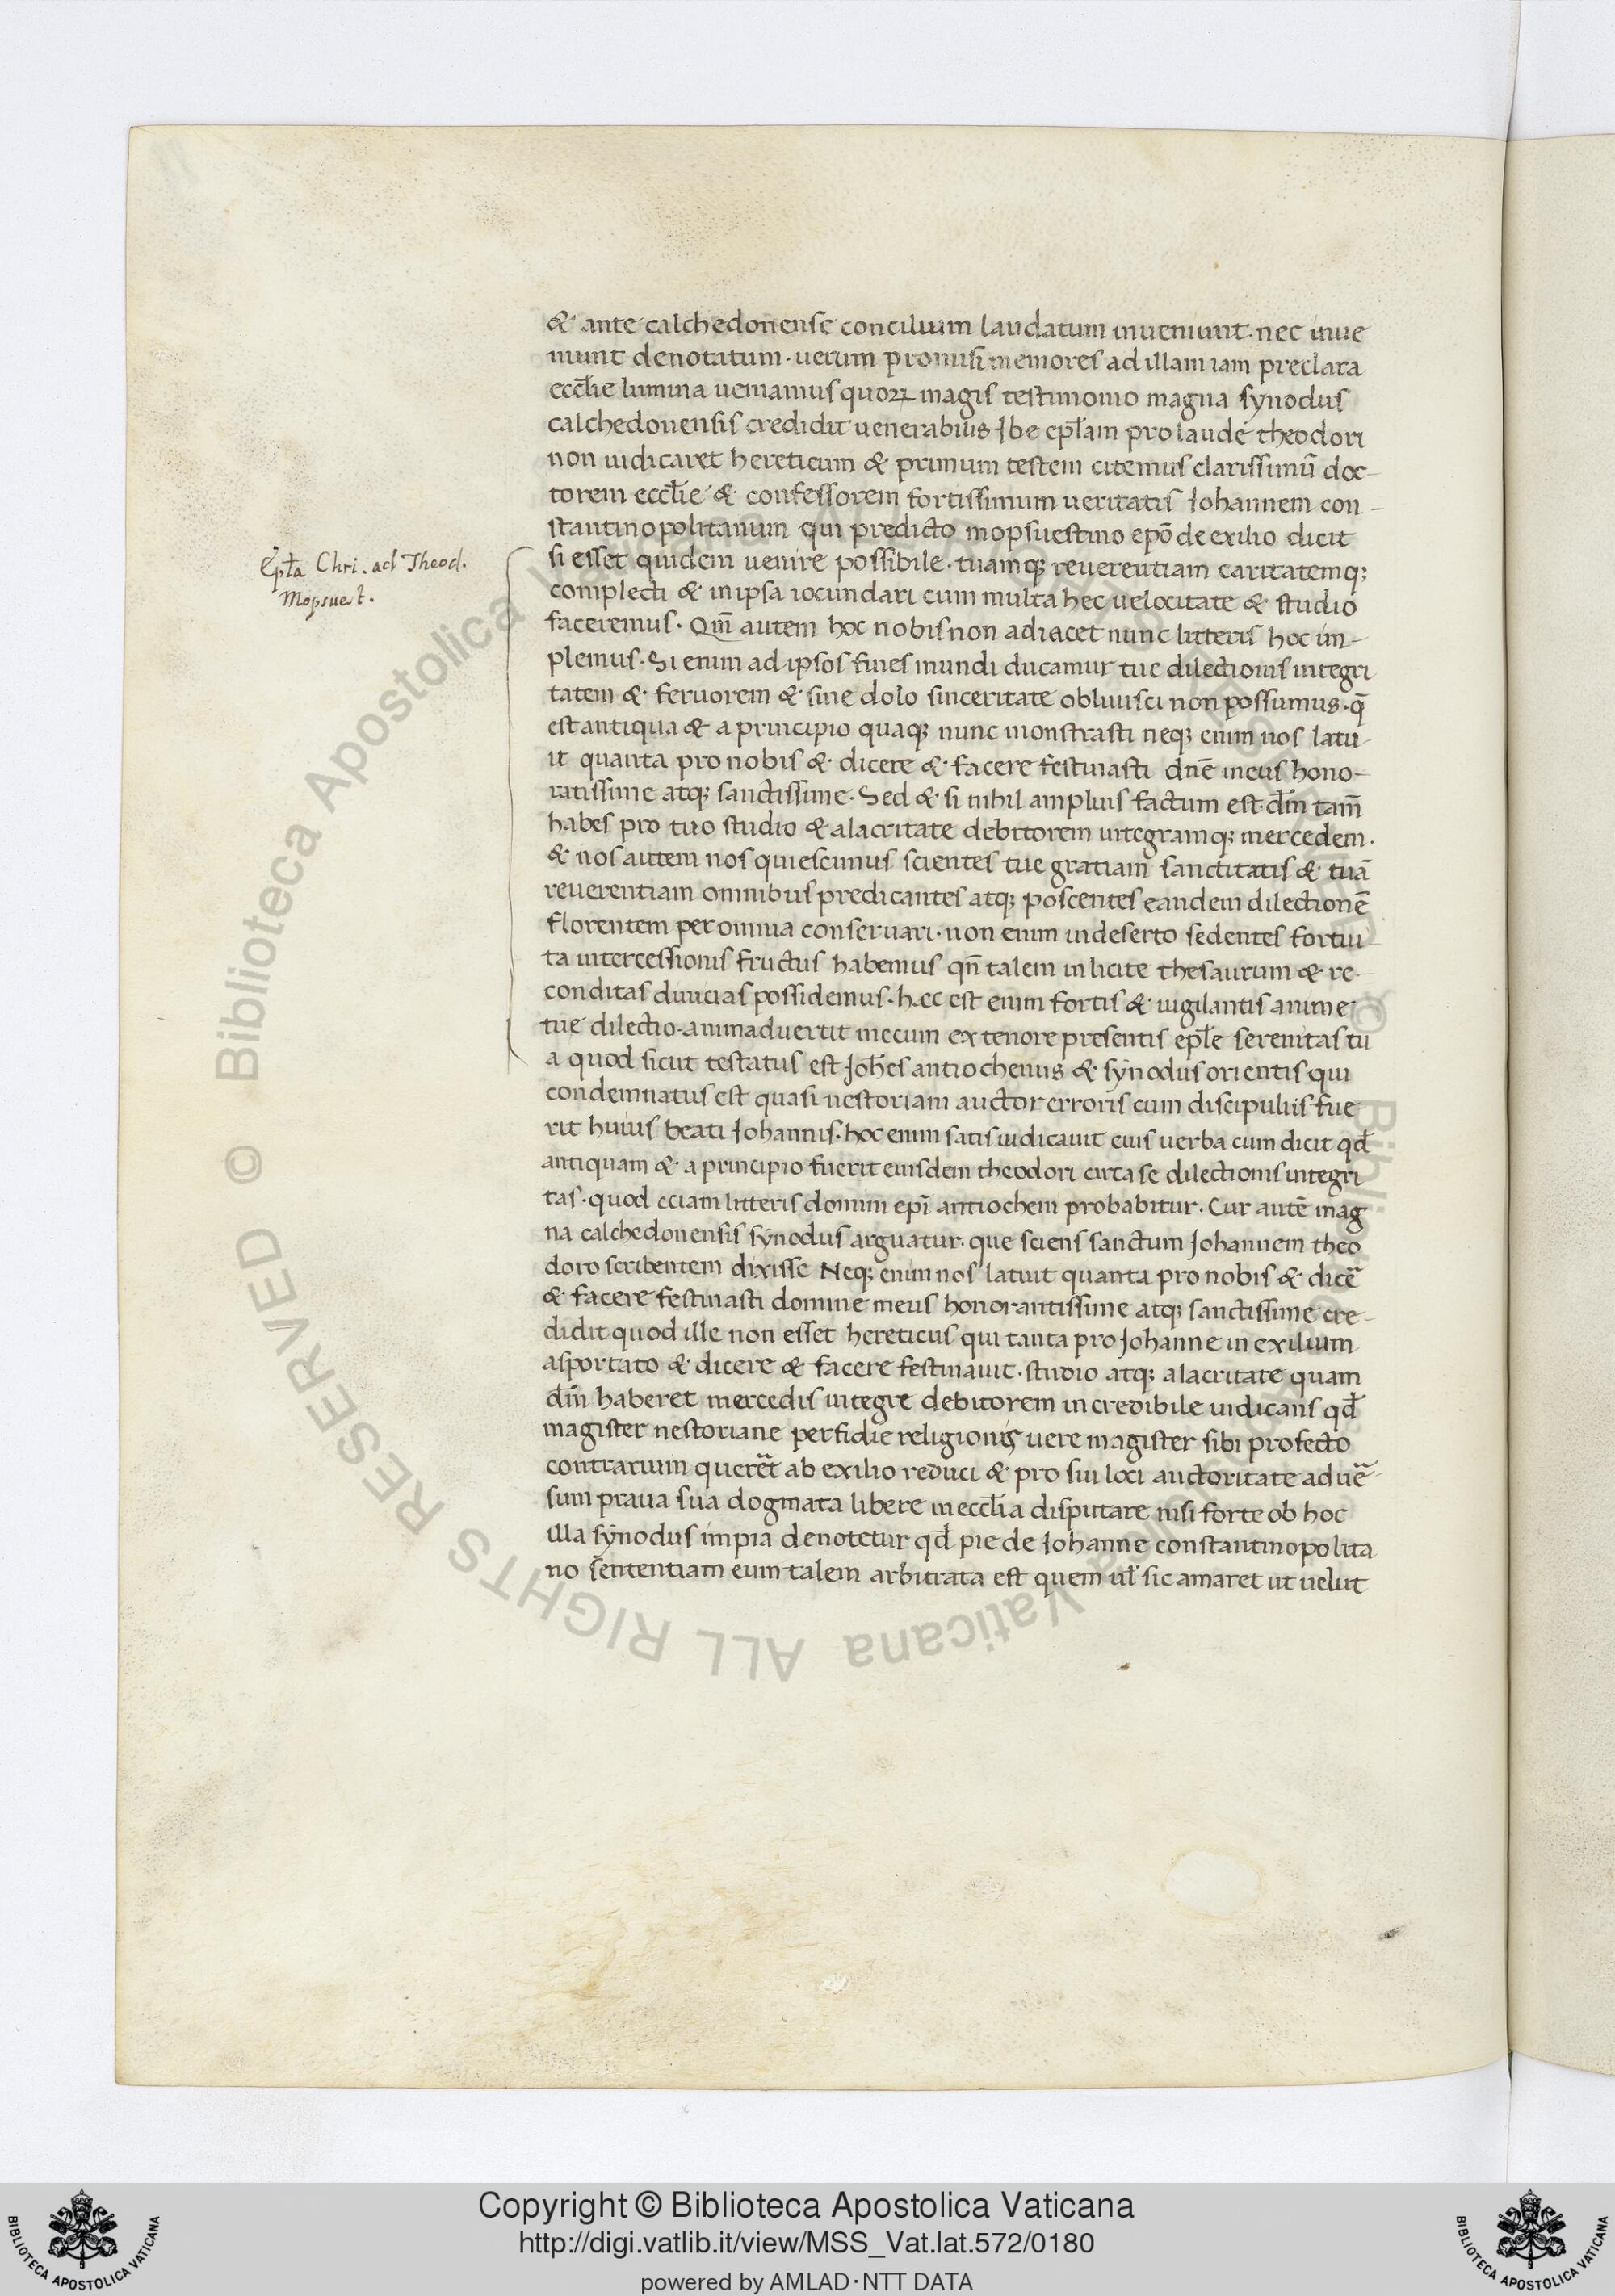 Ep̄la Chri. ad Theod.
Mopsuest.
& ante calchedonense concilium laudatum inueniunt · nec inue
niunt denotatum · uerum promissi memores ad illam iam preclara
eccl̄ie lumina ueniamus quoꝝ magis testimonio magna synodus
calchedonensis credidit uenerabilis Ibe epl̄am pro laude theodori
non iudicaret hereticum & primum testem citemus clarissimū doc-
torem eccl̄ie & confessorem fortissimum ueritatis Iohannem con-
stantinopolitanum qui predicto mopsuestino epō de exilio dicit
si esset quidem uenire possibile · tuamqꝫ reuerentiam caritatemqꝫ
complecti & in ipsa iocundari cum multa hec uelocitate & studio
faceremus · Qm̄ autem hoc nobis non adiacet nunc litteris hoc im-
plemus · Si enim ad ipsos fines mundi ducamur tue dilectionis integri
tatem & feruorem & sine dolo sinceritate obliuisci non possumus · q̄
est antiqua & a principio quaqꝫ nunc monstrasti neqꝫ enim nos latu-
it quanta pro nobis & dicere & facere festinasti dn̄e meus hono-
ratissime atqꝫ sanctissime · Sed & si nihil amplius factum est dm̄ tam̄
habes pro tuo studio & alacritate debitorem integramqꝫ mercedem ·
& nos autem nos quiescimus scientes tue gratiam sanctitatis & tuā
reuerentiam omnibus predicantes atqꝫ poscentes eandem dilectionē
florentem per omnia conseruari · non enim in deserto sedentes fortui
ta intercessionis fructus habemus qn̄ talem in licite thesaurum & re-
conditas diuicias possidemus · hec est enim fortis & uigilantis anime
tue dilectio · animaduertit mecum ex tenore presentis epl̄e serenitas tu
a quod sicut testatus est Joh̄es antiochenus & synodus orientis qui
condemnatus est quasi nestoriam auctor erroris cum discipulis fue
rit huius beati Iohannis · hoc enim satis iudicauit eius uerba cum dicit qd̄
antiquam & a principio fuerit eiusdem theodori circa se dilectionis integri
tas · quod eciam litteris domini epī antiocheni probabitur · Cur autē mag
na calchedonensis synodus arguatur · que sciens sanctum Iohannem theo
doro scribentem dixisse Neqꝫ enim nos latuit quanta pro nobis & dicē
& facere festinasti domine meus honorantissime atqꝫ sanctissime cre-
didit quod ille non esset hereticus qui tanta pro Iohanne in exilium
asportato & dicere & facere festinauit · studio atqꝫ alacritate quam
dm̄ haberet mercedis integre debitorem incredibile iudicans qd̄
magister nestoriane perfidie religionis uere magister sibi profecto
contrarium querēt ab exilio reduci & pro sui loci auctoritate aduē-
sum praua sua dogmata libere in eccl̄ia disputare nisi forte ob hoc
illa synodus impia denotetur qd̄ pie de Iohanne constantinopolita
no sententiam eum talem arbitrata est quem ul̄ sic amaret ut uelut
Copyright © Biblioteca Apostolica Vaticana
http://digi.vatlib.it/view/MSS_Vat.lat.572/0180
powered by AMLAD·NTT DATA
BIBLIOTECA APOSTOLICA VATICANA
BIBLIOTECA APOSTOLICA VATICANA
© Biblioteca Apostolica Vaticana ALL RIGHTS RESERVED